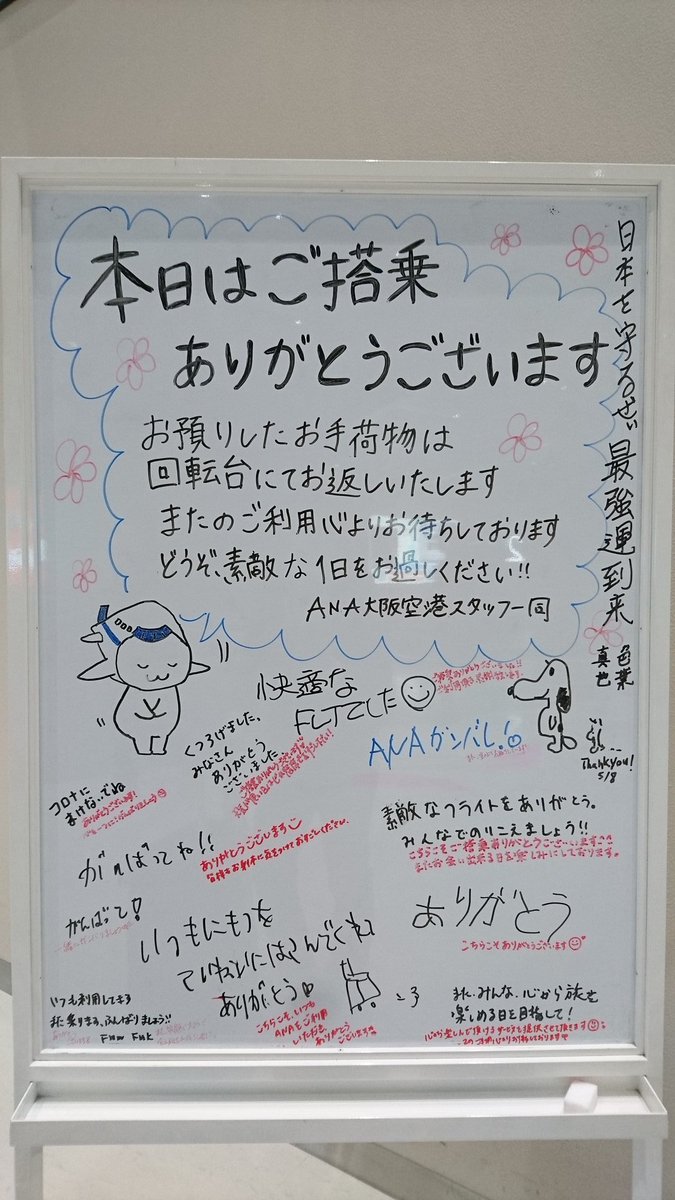 本日はご搭乗
ありがとうございます
お預りしたお手荷物は
回転台にてお返しいたします
またのご利用心よりお待ちしております
どうぞ、素敵な1日をお過しください!!
ANA大阪空港スタッフ一同
日本を守るぜぃ 最強運到来
色葉
真也
快適な
FLTでした
くつろげました。
みなさん
ありがとう
ございました
ANAガンバレ!
Thankyou!
5/8
コロナに
まけないでね
ありがとうございます!
がんばってね!!
ありがとうございます
皆様もお身体に気をつけてお過ごしください。
素敵なフライトをありがとう。
みんなでのりこえましょう!!
こちらこそご搭乗ありがとうございます
またお会い出来る日を楽しみにしております。
がんばって!
いつもにもつを
ていねいにはこんでくれて
ありがとう
こちらこそ、いつも
ANAをご利用
いただき、
ありがとう
ございます
ありがとう
こちらこそありがとうございます
いつも利用してます
また乗ります、ふんばりましょう!!
また、みんな、心から旅を
楽しめる日を目指して!
心から楽しんで頂けるサービスを提供させて頂きます